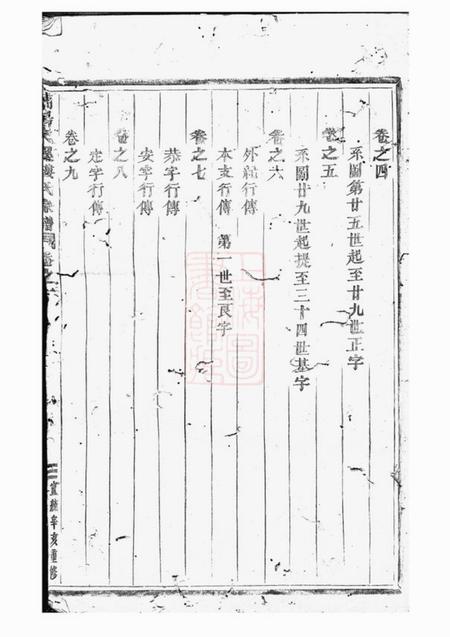 卷之四
系圖第廿五世起至廿九世正字
卷之五
系圖廿九世起提至三十四世基字
卷之六
外紀行傳
本支行傳 第一世至良字
卷之七
恭字行傳
安字行傳
卷之八
定字行傳
卷之九
氏宗譜
宣統辛亥重修